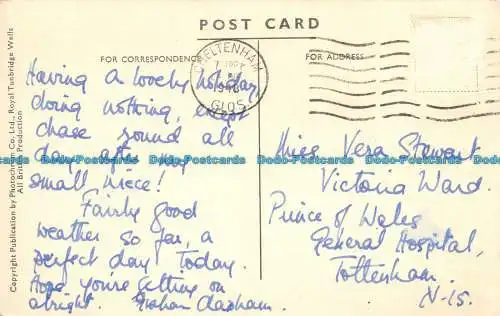 POST CARD
FOR CORRESPONDENCE
FOR ADDRESS
CHELTENHAM
GLOS
Having a lovely holiday,
doing nothing, except
chase round all
day after my
small niece!
Fairly good
weather so far, a
perfect day today.
Hope you're getting on
alright. Graham
Miss Vera Stewart
Victoria Ward.
Prince of Wales
General Hospital,
Tottenham.
N.15.
Copyright Publication by Photochrom Co., Ltd., Royal Tunbridge Wells
All British Production
Dodo-Postcards Dodo-Postcards Dodo-Postcards